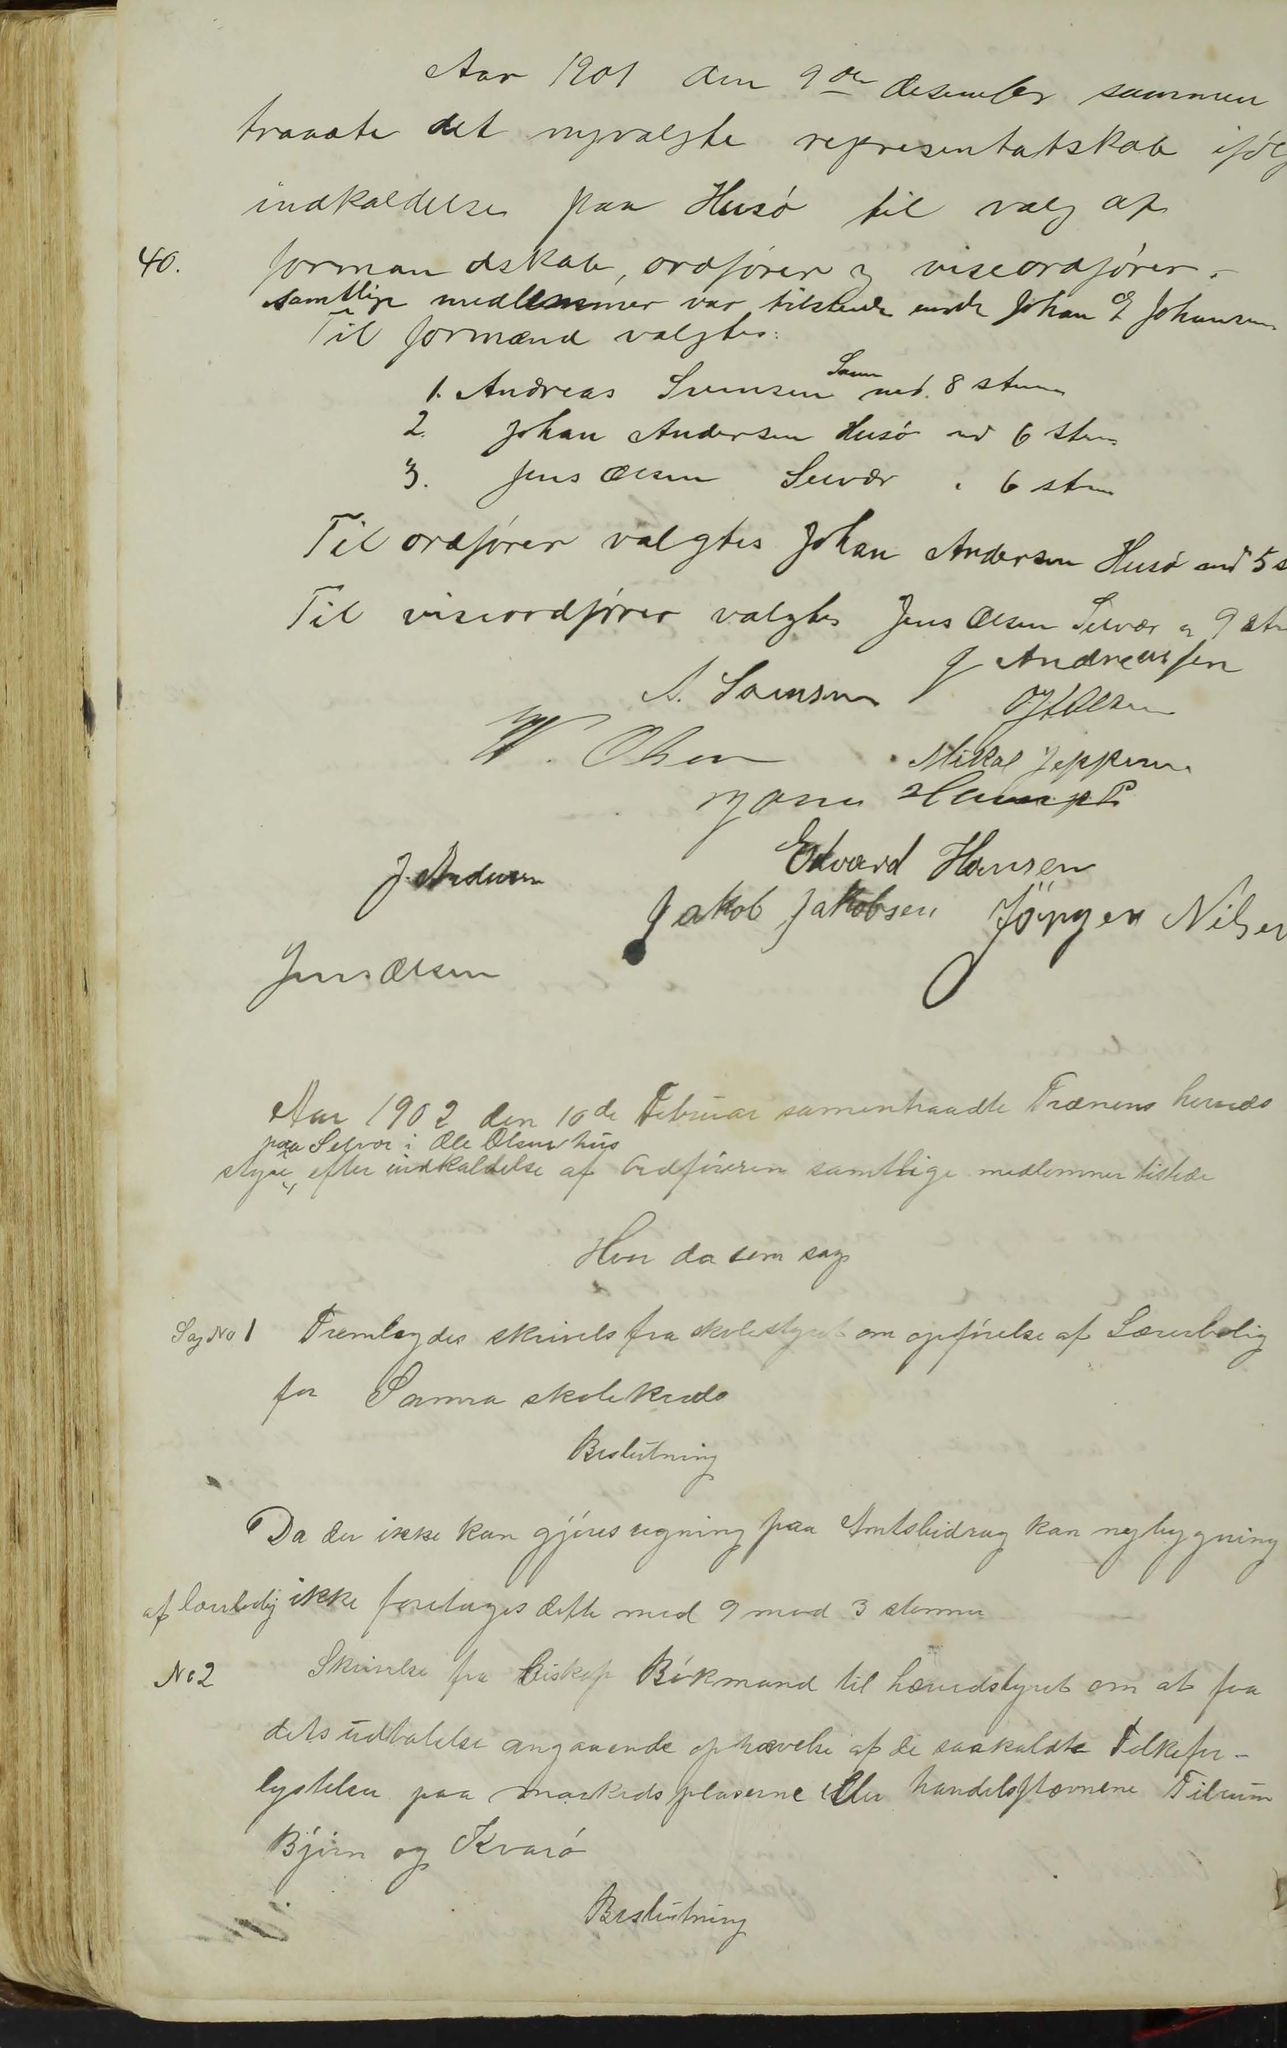 Aar 1901 den 9de desember sammen
traadte det nyvalgte representatskab ifølg
indkaldelse paa Husö til valg af
40. formandskab, ordfører og viseordfører.
samtlige medlemmer var tilstede unde Johan E Johansen
Til formænd valgtes:
1. Andreas Svensen Sanna med 8 stem
2. Johan Andersen Husö md 6 stem
3. Jens Olsen Selvær " 6 stem
Til ordfører valgtes Johan Andersen Husö med 5 s
Til viseordfører valgtes Jens Olsen Selvær " 9 stm
J Andreassen
A. Svensen
O J Olsen
W. Olsen Mikal Jeppesen
Hans
J. Andersen Edvard Hansen
Jakob Jakobsen Jörgen Nilsen
Jens Olsen
Aar 1902 den 10de Februar samentraadte Trænens hereds
paa Selvær i Ole Olsens hus
styre, efter indkaldelse af Ordføreren samtlige medlemmer tilstede
Hvor da som sag
Sag No 1 Fremlagdes skrivels fra skolestyret om opførelse af Lærerbolig
for Sanna skolekreds
Beslutning
Da der ikke kan gjøres regning paa Amtsbidrag kan nybygning
af lærerbolig ikke foretages dette med 9 mod 3 stemmer
No 2 Skrivelse fra Biskop Bökmand til herredstyret om at faa
dets udtalelse angaaende ophævelse af de saakaldte Folkefor-
lystelser paa markedsplasene eller handelsstævnene Tilrum
Björn og Kvarö
Beslutning